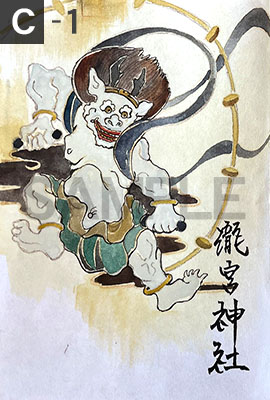 C-1
SAMPLE
瀧宮神社